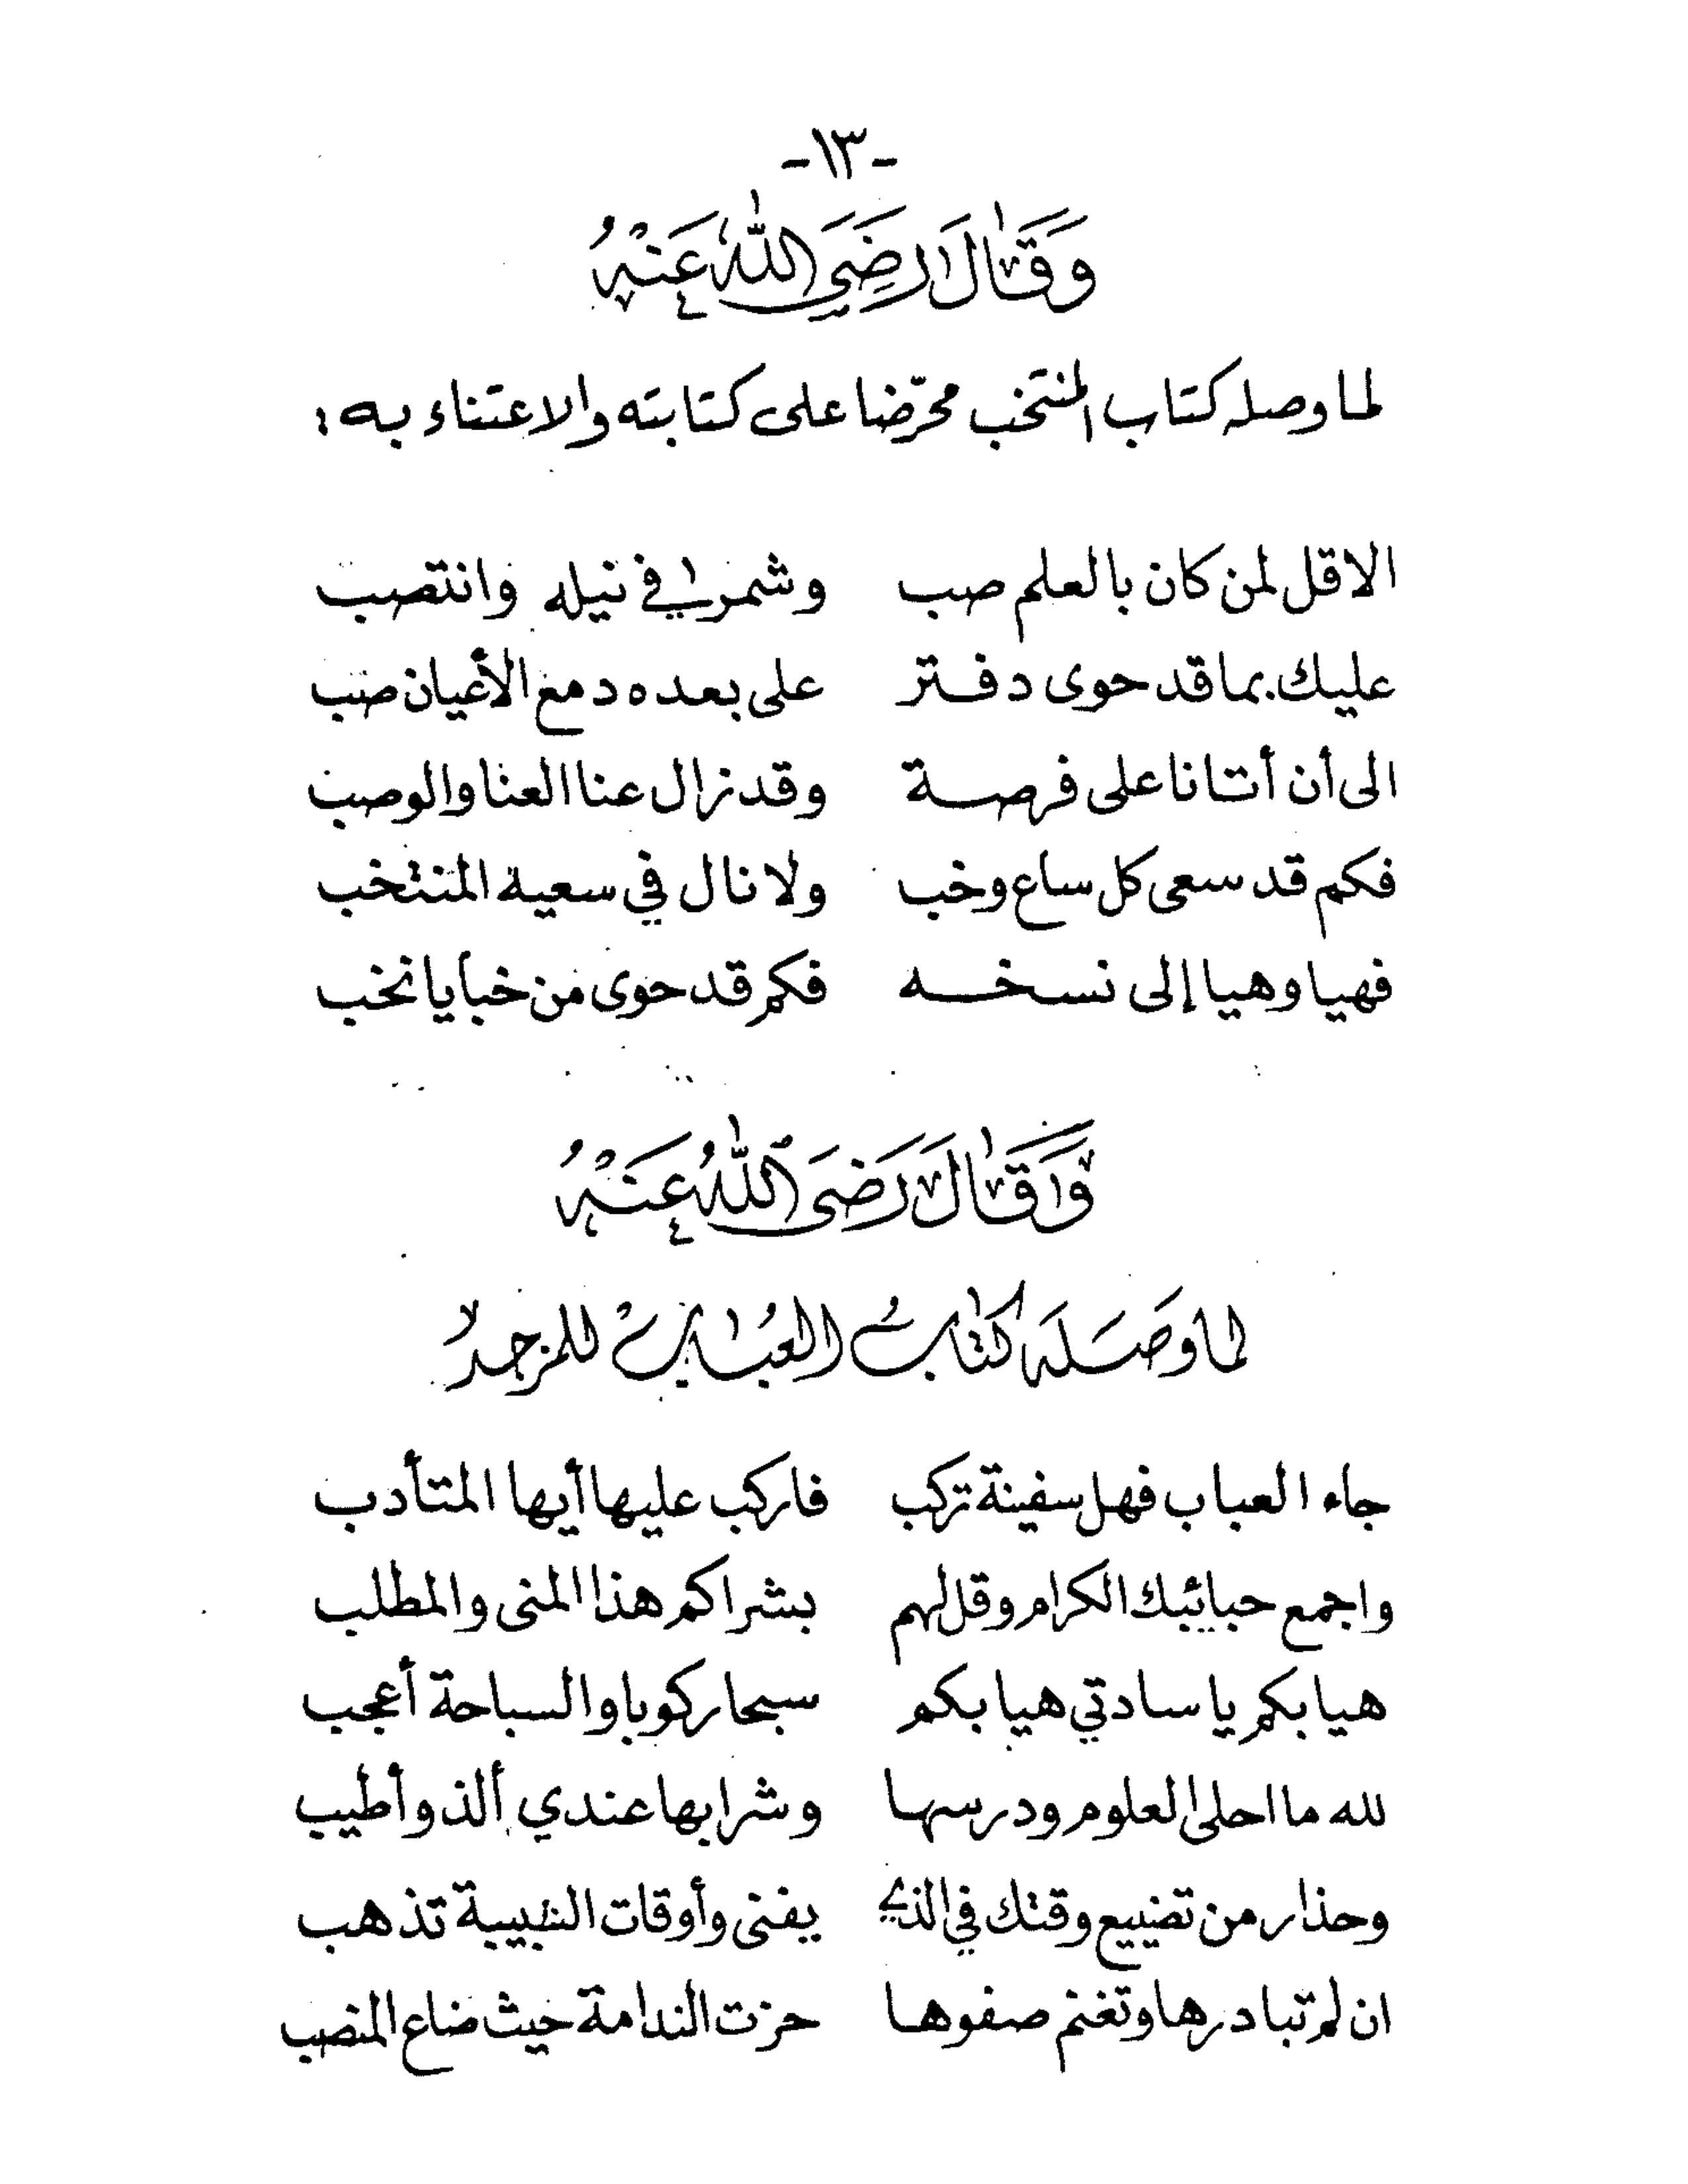 -١٣-
وَقَالَ رَضِيَ اللهُ عَنْهُ
لما وصله كتاب المنتخب محرّضا على كتابته والاعتناء به :
الا قل لمن كان بالعلم صب وشمر في نيله وانتصب
عليك بما قد حوى دفتر على بعده دمع الأعيان صب
الى أن أتانا على فرصة وقد زال عنا العنا والوصب
فكم قد سعى كل ساع وخب ولا نال في سعيه المنتخب
فهيا وهيا إلى نسخه فكم قد حوى من خبايا نخب
وَقَالَ رَضِيَ اللهُ عَنْهُ
لما وَصَلَه كتابُ العُبَاب للمزجد
جاء العباب فهل سفينة تركب فاركب عليها أيها المتأدب
واجمع حبائبك الكرام وقل لهم بشراكم هذا المنى والمطلب
هيا بكم يا سادتي هيا بكم سبحا ركوبا والسباحة أعجب
لله ما احلى العلوم ودرسها وشرابها عندي ألذ وأطيب
وحذار من تضييع وقتك في الذي يفنى وأوقات الشبيبة تذهب
ان لم تبادرها وتغنم صفوها حزت الندامة حيث ضاع المنصب